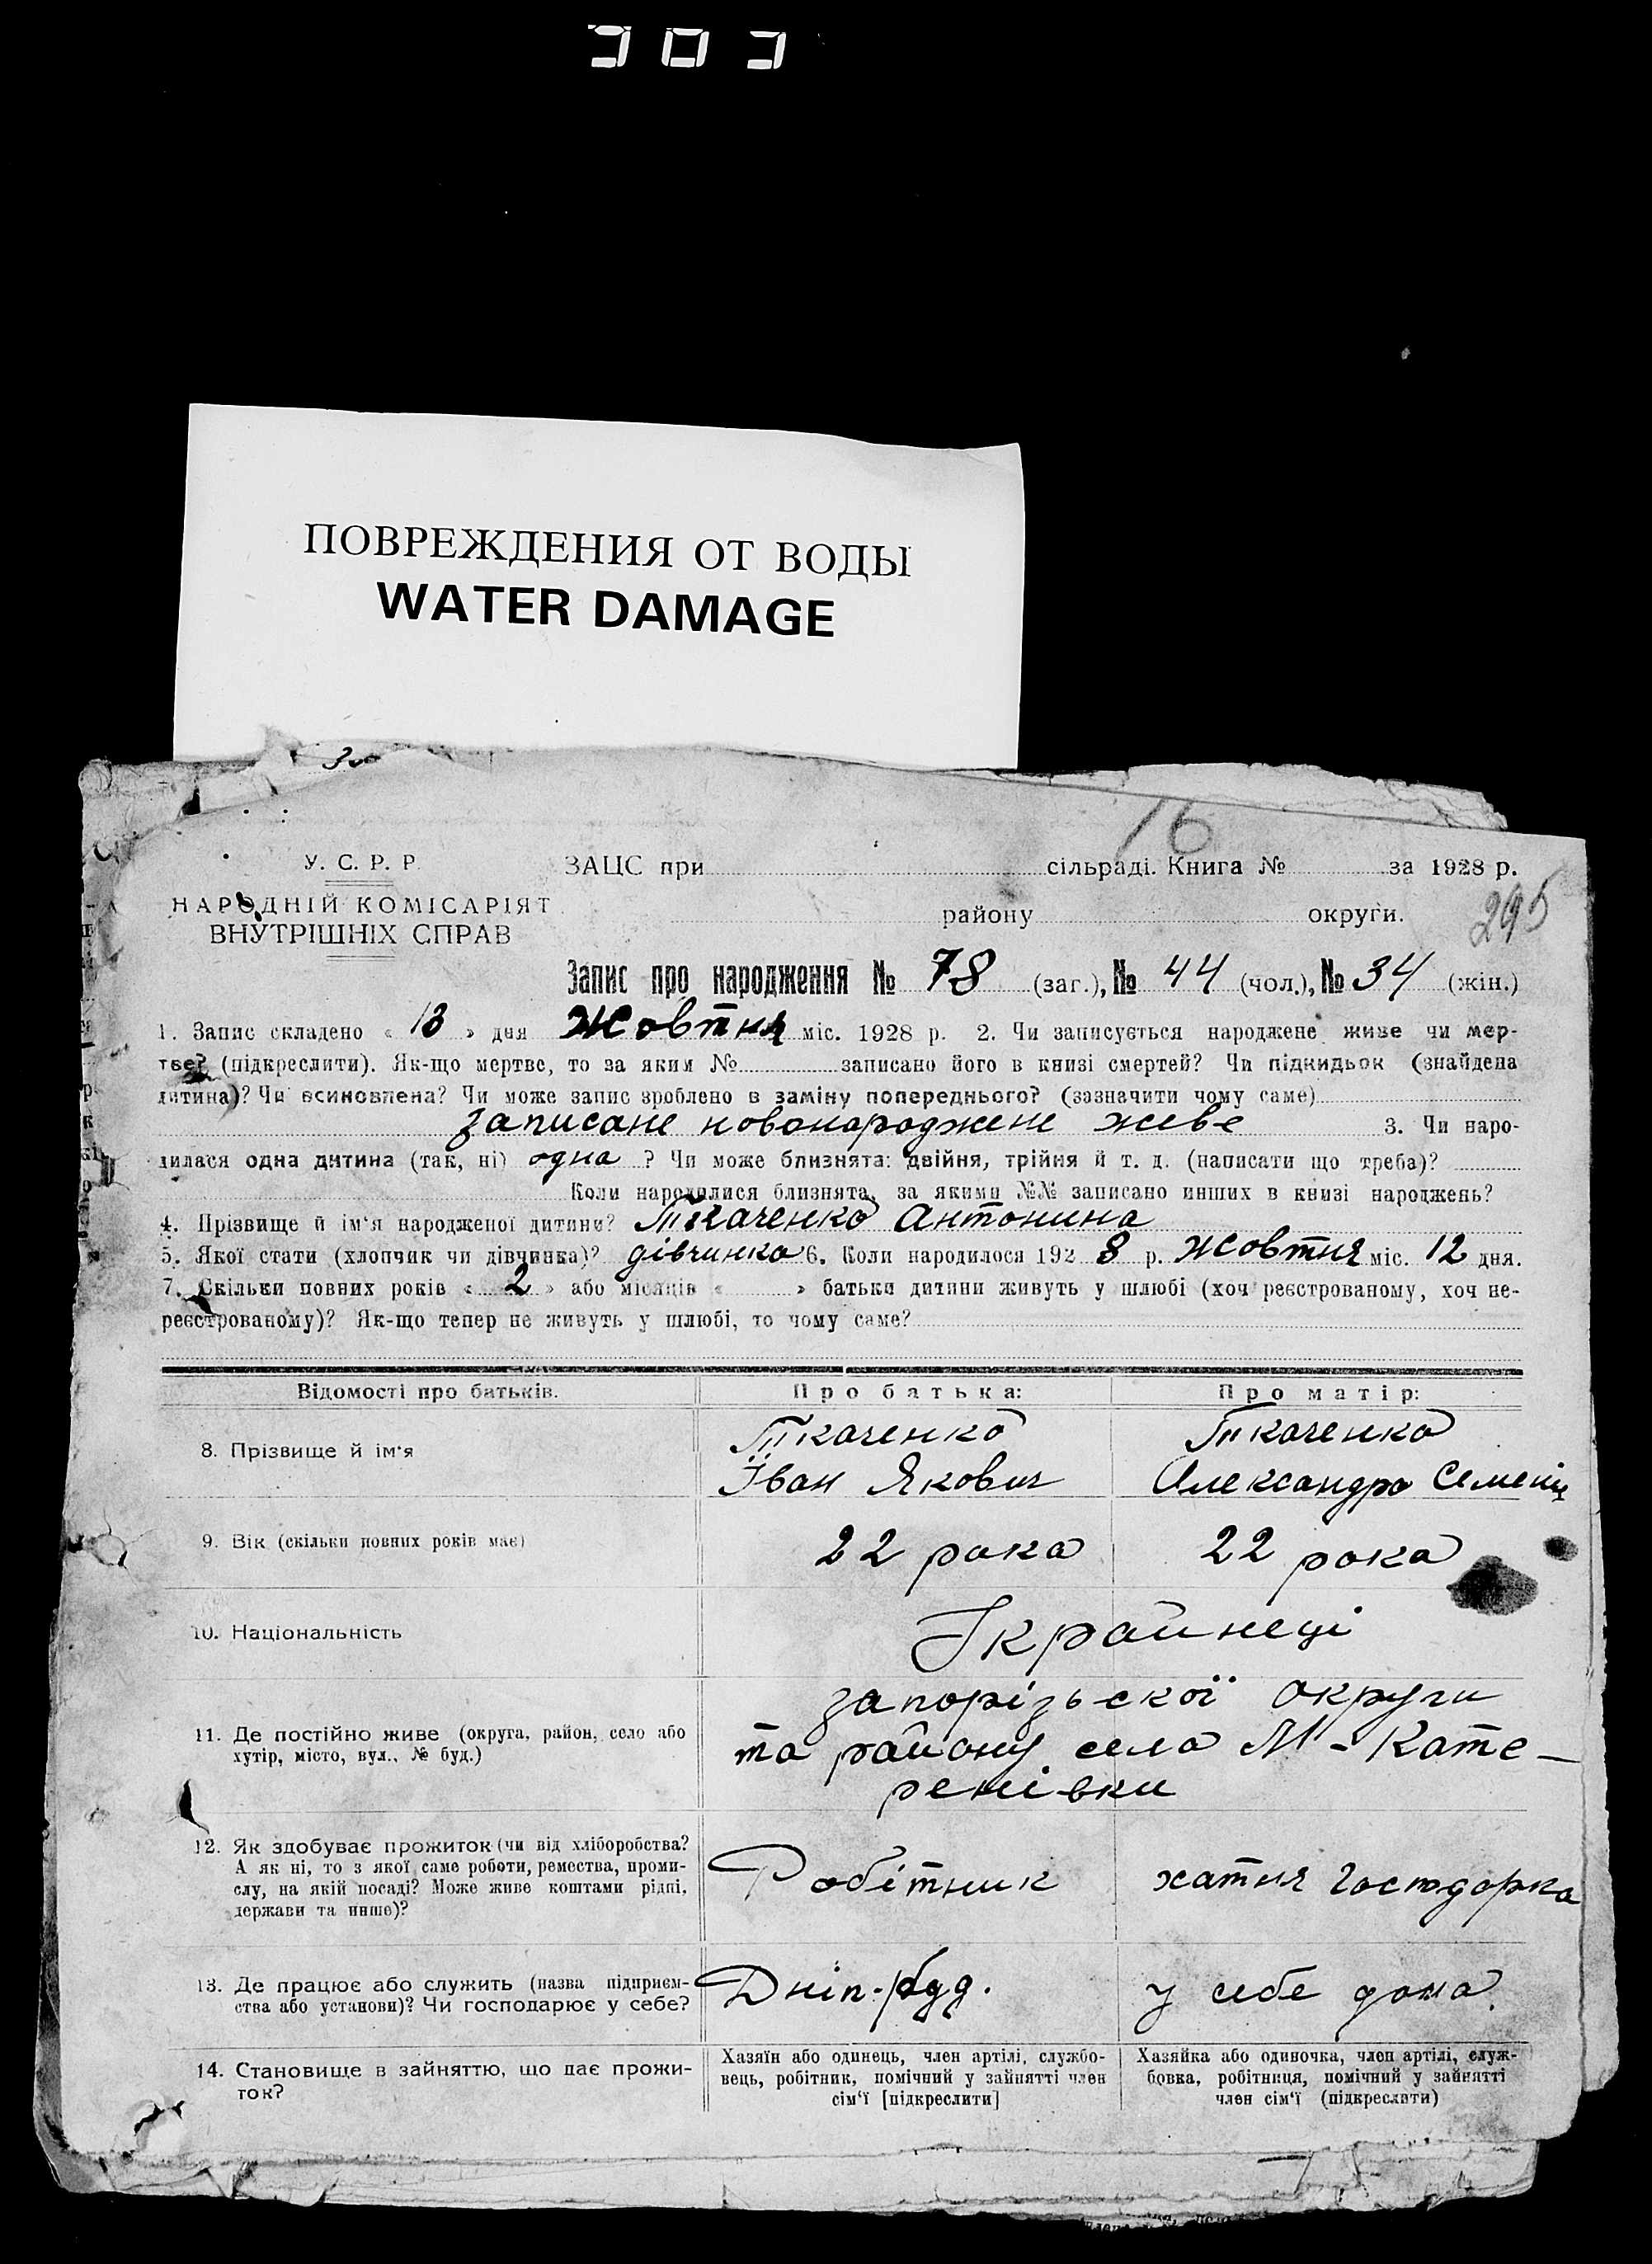 ПОВРЕЖДЕНИЯ ОТ ВОДЫ
WATER DAMAGE
16
У. С. Р. Р. ЗАЦС при сільраді. Книга № за 1928 р.
НАРОДНІЙ КОМІСАРІЯТ району округи. 295
ВНУТРІШНІХ СПРАВ
Запис про народження № 78 (заг.), № 44 (чол.), № 34 (жін.)
1. Запис складено « 13 » дня Жовтня міс. 1928 р. 2. Чи записується народжене живе чи мер-
тве? (підкреслити). Як-що мертве, то за яким № записано його в книзі смертей? Чи підкидьок (знайдена
дитина)? Чи всиновлена? Чи може запис зроблено в заміну попереднього? (зазначити чому саме)
записане новонароджене живе 3. Чи наро-
дилася одна дитина (так, ні) одна ? Чи може близнята: двійня, трійня й т. д. (написати що треба)?
Коли народилися близнята, за якими №№ записано инших в книзі народжень?
4. Прізвище й ім'я народженої дитини? Ткаченко Антонина
5. Якої стати (хлопчик чи дівчинка)? дівчинка 6. Коли народилося 192 8 р. Жовтня міс. 12 дня.
7. Скільки повних років « 2 » або місяців « » батьки дитини живуть у шлюбі (хоч реєстрованому, хоч не-
реєстрованому)? Як-що тепер не живуть у шлюбі, то чому саме?
Відомості про батьків. Про батька: Про матір:
8. Прізвище й ім'я Ткаченко Ткаченко
Іван Якович Александра Семені
9. Вік (скільки повних років має) 22 рока 22 рока
10. Національність Українеці
запорізьської округи
11. Де постійно живе (округа, район, село або та району села М-Кате-
хутір, місто, вул., № буд.) ренівки
12. Як здобуває прожиток (чи від хліборобства?
А як ні, то з якої саме роботи, ремества, проми- Робітник хатня господарка
слу, на якій посаді? Може живе коштами рідні,
держави та инше)?
13. Де працює або служить (назва підприєм- Дніп-буд. у себе дома
ства або установи)? Чи господарює у себе?
14. Становище в зайняттю, що дає прожи- Хазяїн або одинець, член артілі, службо- Хазяйка або одиночка, член артілі, служ-
ток? вець, робітник, помічний у зайнятті член бовка, робітниця, помічний у зайнятті
сім'ї [підкреслити] член сім'ї (підкреслити)